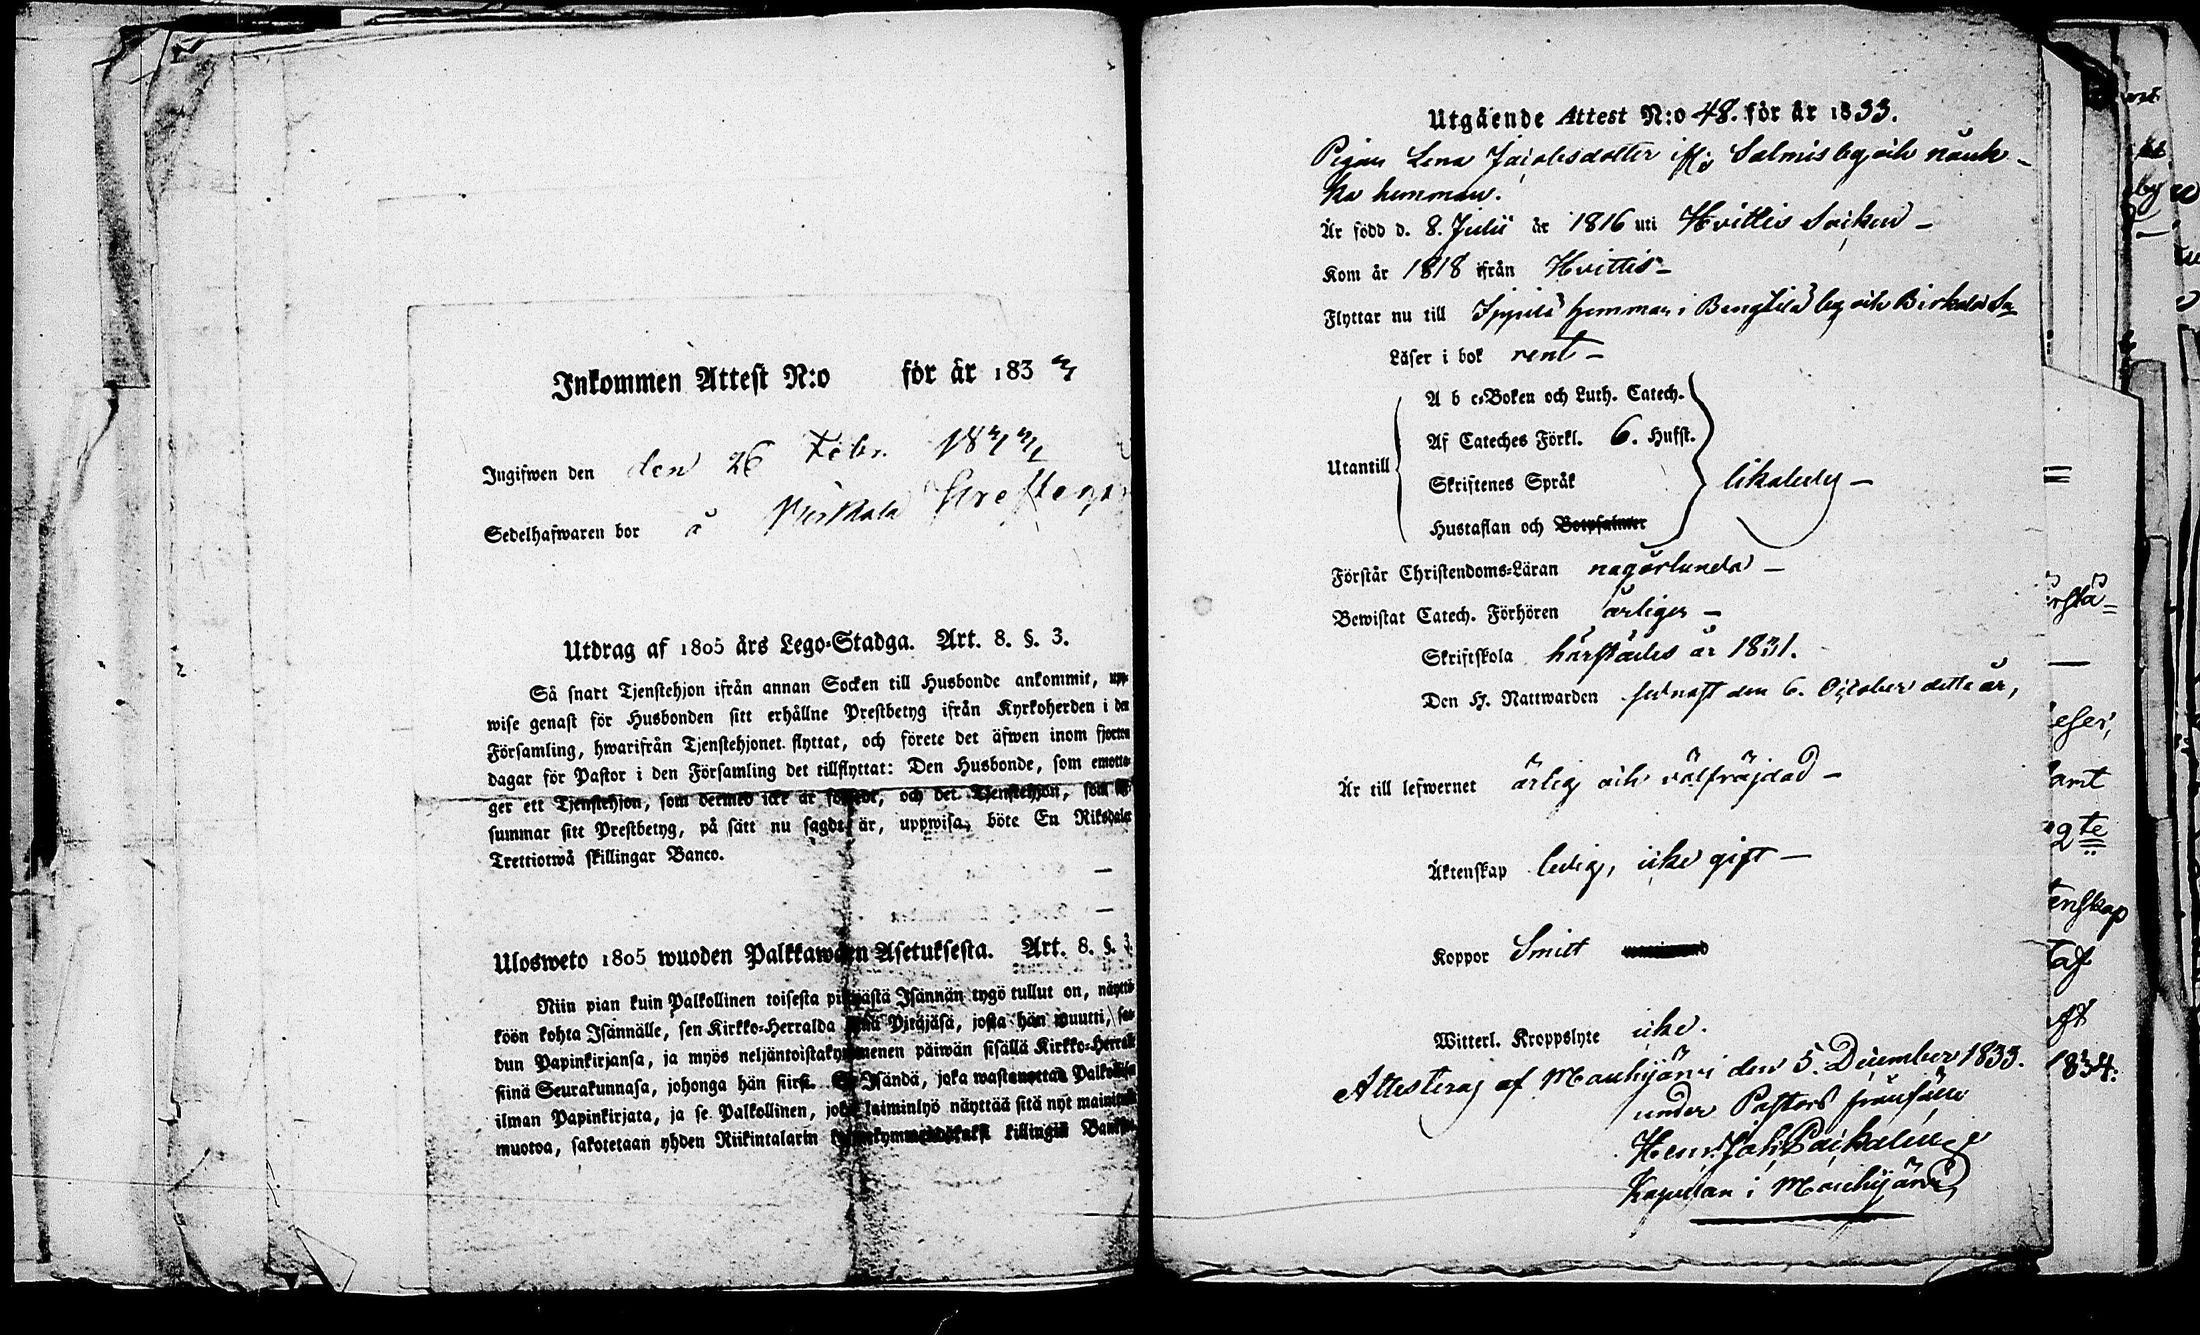 Inkommen Attest N:o för år 183
Ingifwen den den 26 Febr. 18
Sedelhafwaren bor å
Utdrag af 1805 års Lego-Stadga. Art. 8. §. 3.
Så snart Tjenstehjon ifrån annan Socken till Husbonde ankommit, upp-
wise genast för Husbonden sitt erhållne Prestbetyg ifrån Kyrkoherden i den
Församling, hwarifrån Tjenstehjonet flyttat, och förete det äfwen inom fjorton
dagar för Pastor i den Församling det tillflyttat: Den Husbonde, som emotta-
ger ett Tjenstehjon, som dermed icke är försedt, och det Tjenstehjon, som
summar sitt Prestbetyg, på sätt nu sagdt är, uppwisa, böte En Riksdaler
Trettiotwå skillingar Banco.
Ulosweto 1805 wuoden Palkkawäen Asetuksesta. Art. 8. §. 3.
Niin pian kuin Palkollinen toisesta pitäjästä Isännän tygö tullut on, näyttä-
köön kohta Isännälle, sen Kirkko-Herralda siinä Pitäjäsä, josta hän muutti, saa-
dun Papinkirjansa, ja myös neljäntoistakymmenen päiwän sisällä Kirkko-Herralle
siinä Seurakunnasa, johonga hän siirsi. Se Isändä, joka wastanottaa Palkollisen
ilman Papinkirjata, ja se Palkollinen, joka laiminlyö näyttää sitä nyt mainitulla
muotoa, sakotetaan yhden Riikintalarin kolmekymmendäkaksi killingin Bankosa.
Utgående Attest N:o 48. för år 1833.
Pigan Lena Jacobsdotter ifrå Salmis by och nauk-
ka hemman.
Är född d. 8. Julii år 1816 uti Hvittis Socken –
Kom år 1818 ifrån Hvittis –
Flyttar nu till hemman i by och Birkala So
Läser i bok rent –
Utantill
A b c-Boken och Luth. Catech.
Af Cateches Förkl. 6. Hufst.
Skriftenes Språk
Hustaflan och Botpsalmer
likaledes –
Förstår Christendoms-Läran någorlunda –
Bewistat Catech. Förhören årligen –
Skriftskola härstädes år 1831.
Den H. Nattwarden sednast den 6. October detta år,
Är till lefwernet ärlig och välfräjdad –
Äktenskap ledig, icke gift –
Koppor Smitt
Witterl. Kroppslyte icke.
Attesteras af Mouhijärvi den 5. December 1833.
under Pastors frånfälle
Henr. Joh. Packalenge
Kapellan i Mouhijärvi